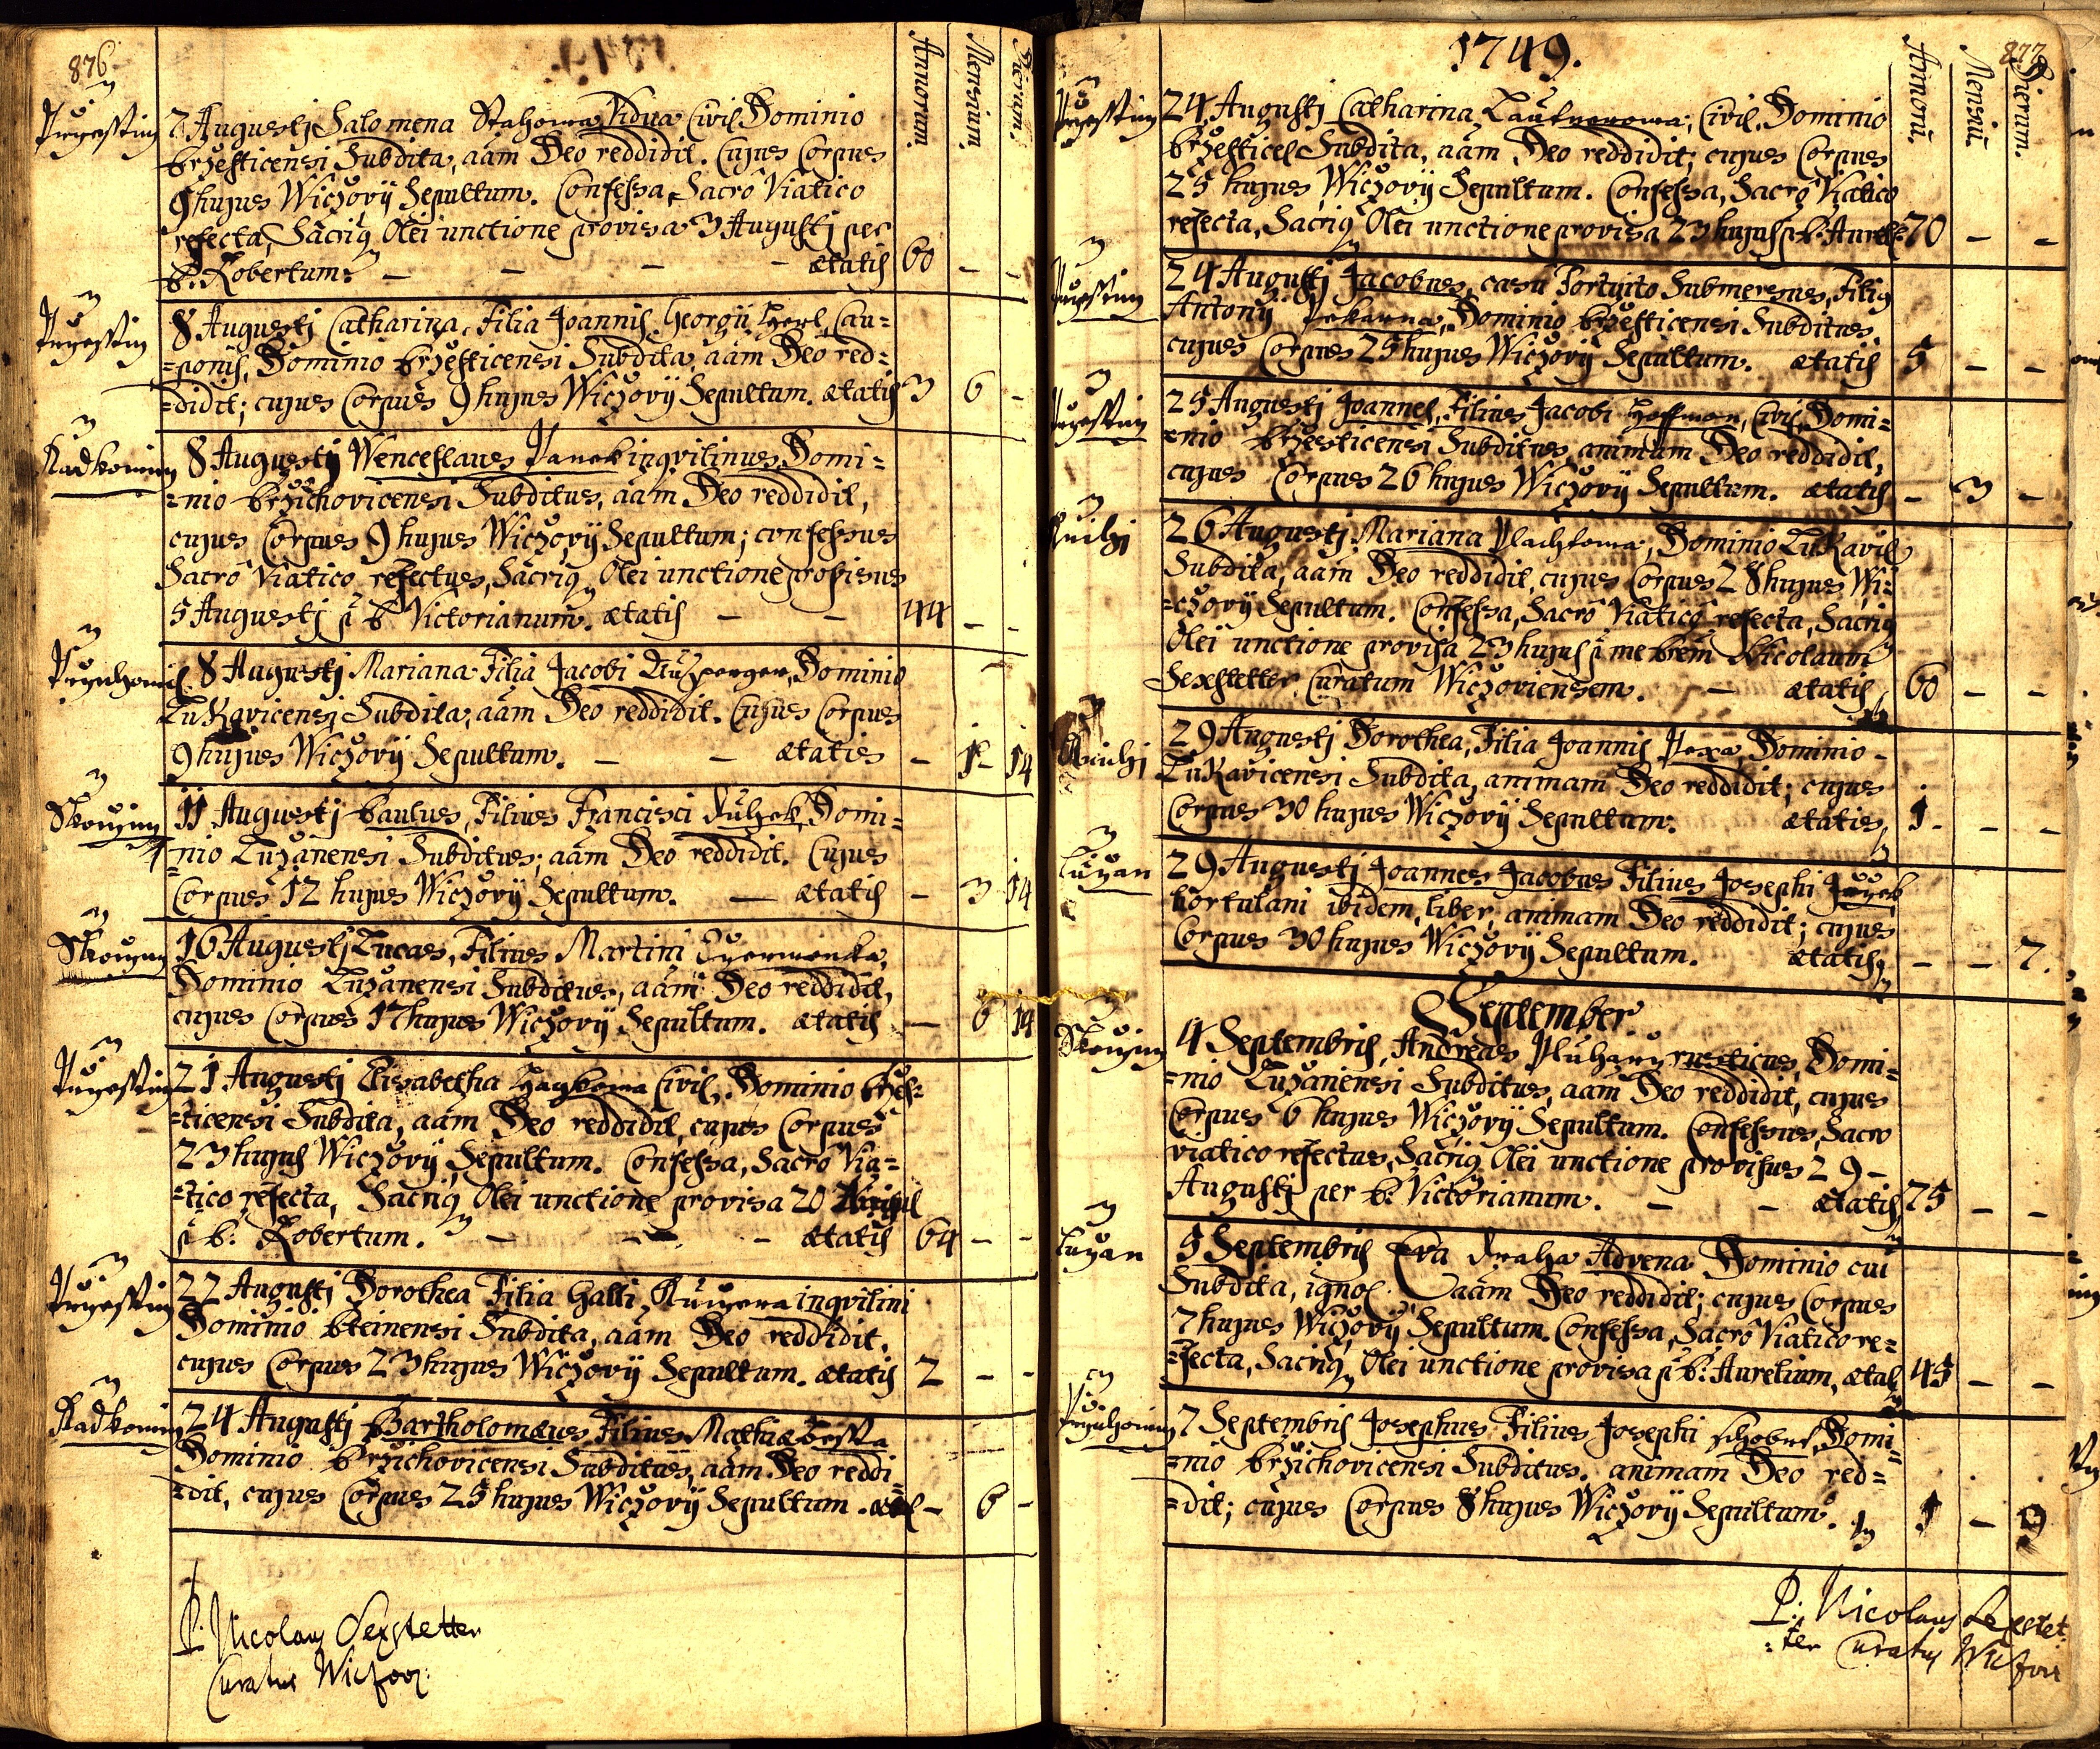 876
Annorum. Mensium. Dierum.
Przestin
7 Augusti Salomena Stahowa Vidua Civis Dominio
Brzesticensi Subdita, aam Deo reddidit. Cujus Corpus
9 hujus Wiczovÿ Sepultum. Confessa, Sacro Viatico
refecta, Sacriq Olei unctione provisa 3 Augusti per
P. Robertum. — — — — ætatis 60 – –
Przestin
8 Augusti Catharina, Filia Joannis Georgii Cau=
=ponis, Dominio Brzesticensi Subdita, aam Deo red=
=didit; cujus Corpus 9 hujus Wiczovÿ Sepultum. ætatis 3 6 –
Radkowiz
8 Augusti Wenceslaus Panek inqvilinus, Domi=
=nio Brzichovicensi Subditus, aam Deo reddidit,
cujus Corpus 9 hujus Wiczovÿ Sepultum; confessus
Sacro Viatico refectus, Sacriq Olei unctione provisus
5 Augusti p P Victorianum. ætatis — — 44 – –
8 Augusti Mariana Filia Jacobi Dominio
Lukavicensi Subdita, aam Deo reddidit. Cujus Corpus
9 hujus Wiczovÿ Sepultum. — — ætatis – 1 14
Skocziz
11 Augusti Paulus, Filius Francisci Domi=
=nio Luzanensi Subditus; aam Deo reddidit. Cujus
Corpus 12 hujus Wiczovÿ Sepultum. — ætatis – 3 14
Skocziz
16 Augusti Lucas, Filius Martini Czermenka,
Dominio Luzanensi Subditus, aam Deo reddidit,
cujus Corpus 17 hujus Wiczovÿ Sepultum. ætatis — 6 14
Przestin
21 Augusti Elisabetha Haykowa Civis, Dominio Brzes=
=ticensi Subdita, aam Deo reddidit, cujus Corpus
23 hujus Wiczovÿ Sepultum. Confessa, Sacro Via=
=tico refecta, Sacriq Olei unctione provisa 20
p P: Robertum. — — – ætatis 64 – –
Przestin
22 Augusti Dorothea Filia Galli inqvilini
Dominio Pteinensi Subdita, aam Deo reddidit,
cujus Corpus 23 hujus Wiczovÿ Sepultum. ætatis 2 – –
Radkowiz
24 Augusti Bartholomæus Filius Mathiæ
Dominio Brzichovicensi Subditus, aam Deo reddi=
=dit, cujus Corpus 25 hujus Wiczovÿ Sepultum. – 6 –
P. Nicolaus Sexstetter
Curatus Wiczov:
1749.
877
Annorū. Mensiū. Dierum.
Przestin
24 Augusti Catharina Civis, Dominio
Brzesticen Subdita, aam Deo reddidit; cujus Corpus
25 hujus Wiczovÿ Sepultum. Confessa, Sacro Viatico
refecta, Sacriq Olei unctione provisa 23 hujus p P: Aurel: 70 – –
Przestin
24 Augusti Jacobus, casu Fortuito Submersus, Filiq
Antonÿ Pekarna, Dominio Brzesticensi Subditus,
cujus Corpus 25 hujus Wiczovÿ Sepultum. ætatis 5 – –
Przestin
25 Augusti Joannes, Filius Jacobi Hoffman, Civis, Domi=
=nio Brzesticensi Subditus, animam Deo reddidit,
cujus Corpus 26 hujus Wiczovÿ Sepultum. ætatis – 3 –
26 Augusti Mariana Plachtowa, Dominio Lukavic
Subdita, aam Deo reddidit, cujus Corpus 28 hujus Wi=
=czovÿ Sepultum. Confessa, Sacro Viatico refecta, Sacriq
Olei unctione provisa 23 hujus p me Prem Nicolaum
Sexstetter Curatum Wiczoviensem. — ætatis 60 – –
29 Augusti Dorothea, Filia Joannis Pexa, Dominio
Lukavicensi Subdita, animam Deo reddidit; cujus
Corpus 30 hujus Wiczovÿ Sepultum. ætatis 1 – –
Luzan
29 Augusti Joannes Jacobus Filius Josephi
hortulani ibidem, liber, animam Deo reddidit; cujus
Corpus 30 hujus Wiczovÿ Sepultum. ætatis – – 7.
September
Skocziz
4 Septembris, Andreas Pluharz rusticus, Domi=
=nio Luzanensi Subditus, aam Deo reddidit, cujus
Corpus 6 hujus Wiczovÿ Sepultum. Confessus, Sacro
viatico refectus, Sacriq Olei unctione provisus 29 –
Augusti per P: Victorianum. — – ætatis 75 – –
Luzan
5 Septembris Eva Advena Dominio cui
Subdita, ignos. aam Deo reddidit; cujus Corpus
7 hujus Wiczovÿ Sepultum. Confessa, Sacro Viatico re=
=fecta, Sacriq Olei unctione provisa p P: Aurelium, ætat 45 – –
7 Septembris Josephus, Filius Josephi Domi=
=nio Brzichovicensi Subditus. animam Deo red=
=dit; cujus Corpus 8 hujus Wiczovÿ Sepultum. 1 –
P: Nicolaus Sexstet
=ter Curatus Wiczov